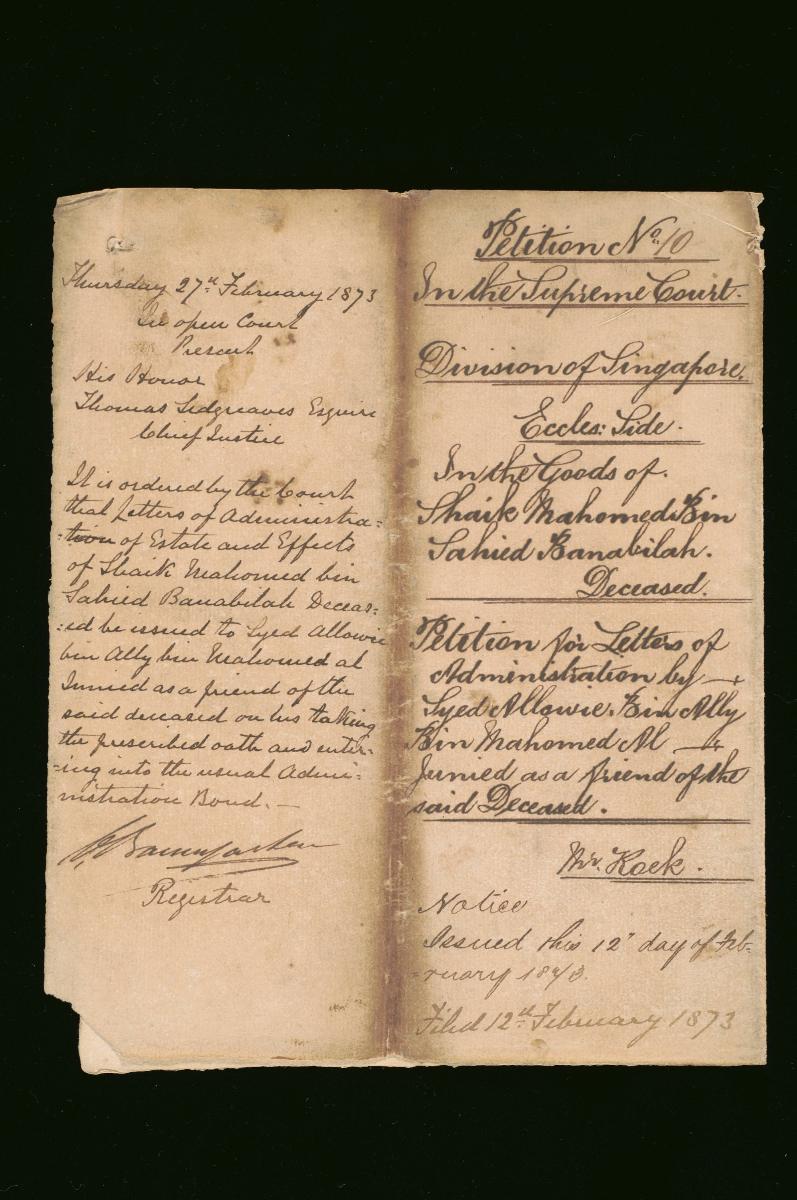 Thursday 27th February 1873
In open Court
Present
His Honor
Thomas Sidgreaves Esquire
Chief Justice
It is ordered by the Court
that Letters of Administra=
=tion of Estate and Effects
of Shaik Mahomed bin
Sahied Banabilah Deceas=
=ed be issued to Syed Allowie
bin Ally bin Mahomed al
Junied as a friend of the
said deceased on his taking
the prescribed oath and enter=
=ing into the usual Admi=
nistration Bond. —
Baumgarten
Registrar
Petition No. 10
In the Supreme Court.
Division of Singapore.
Eccles: Side.
In the Goods of.
Shaik Mahomed Bin
Sahied Banabilah.
Deceased.
Petition for Letters of
Administration by —
Syed Allowie. Bin Ally
Bin Mahomed Al —
Junied as a friend of the
said Deceased.
Mr. Koek.
Notice
Issued this 12" day of Feb=
=ruary 1873.
Filed 12th February 1873